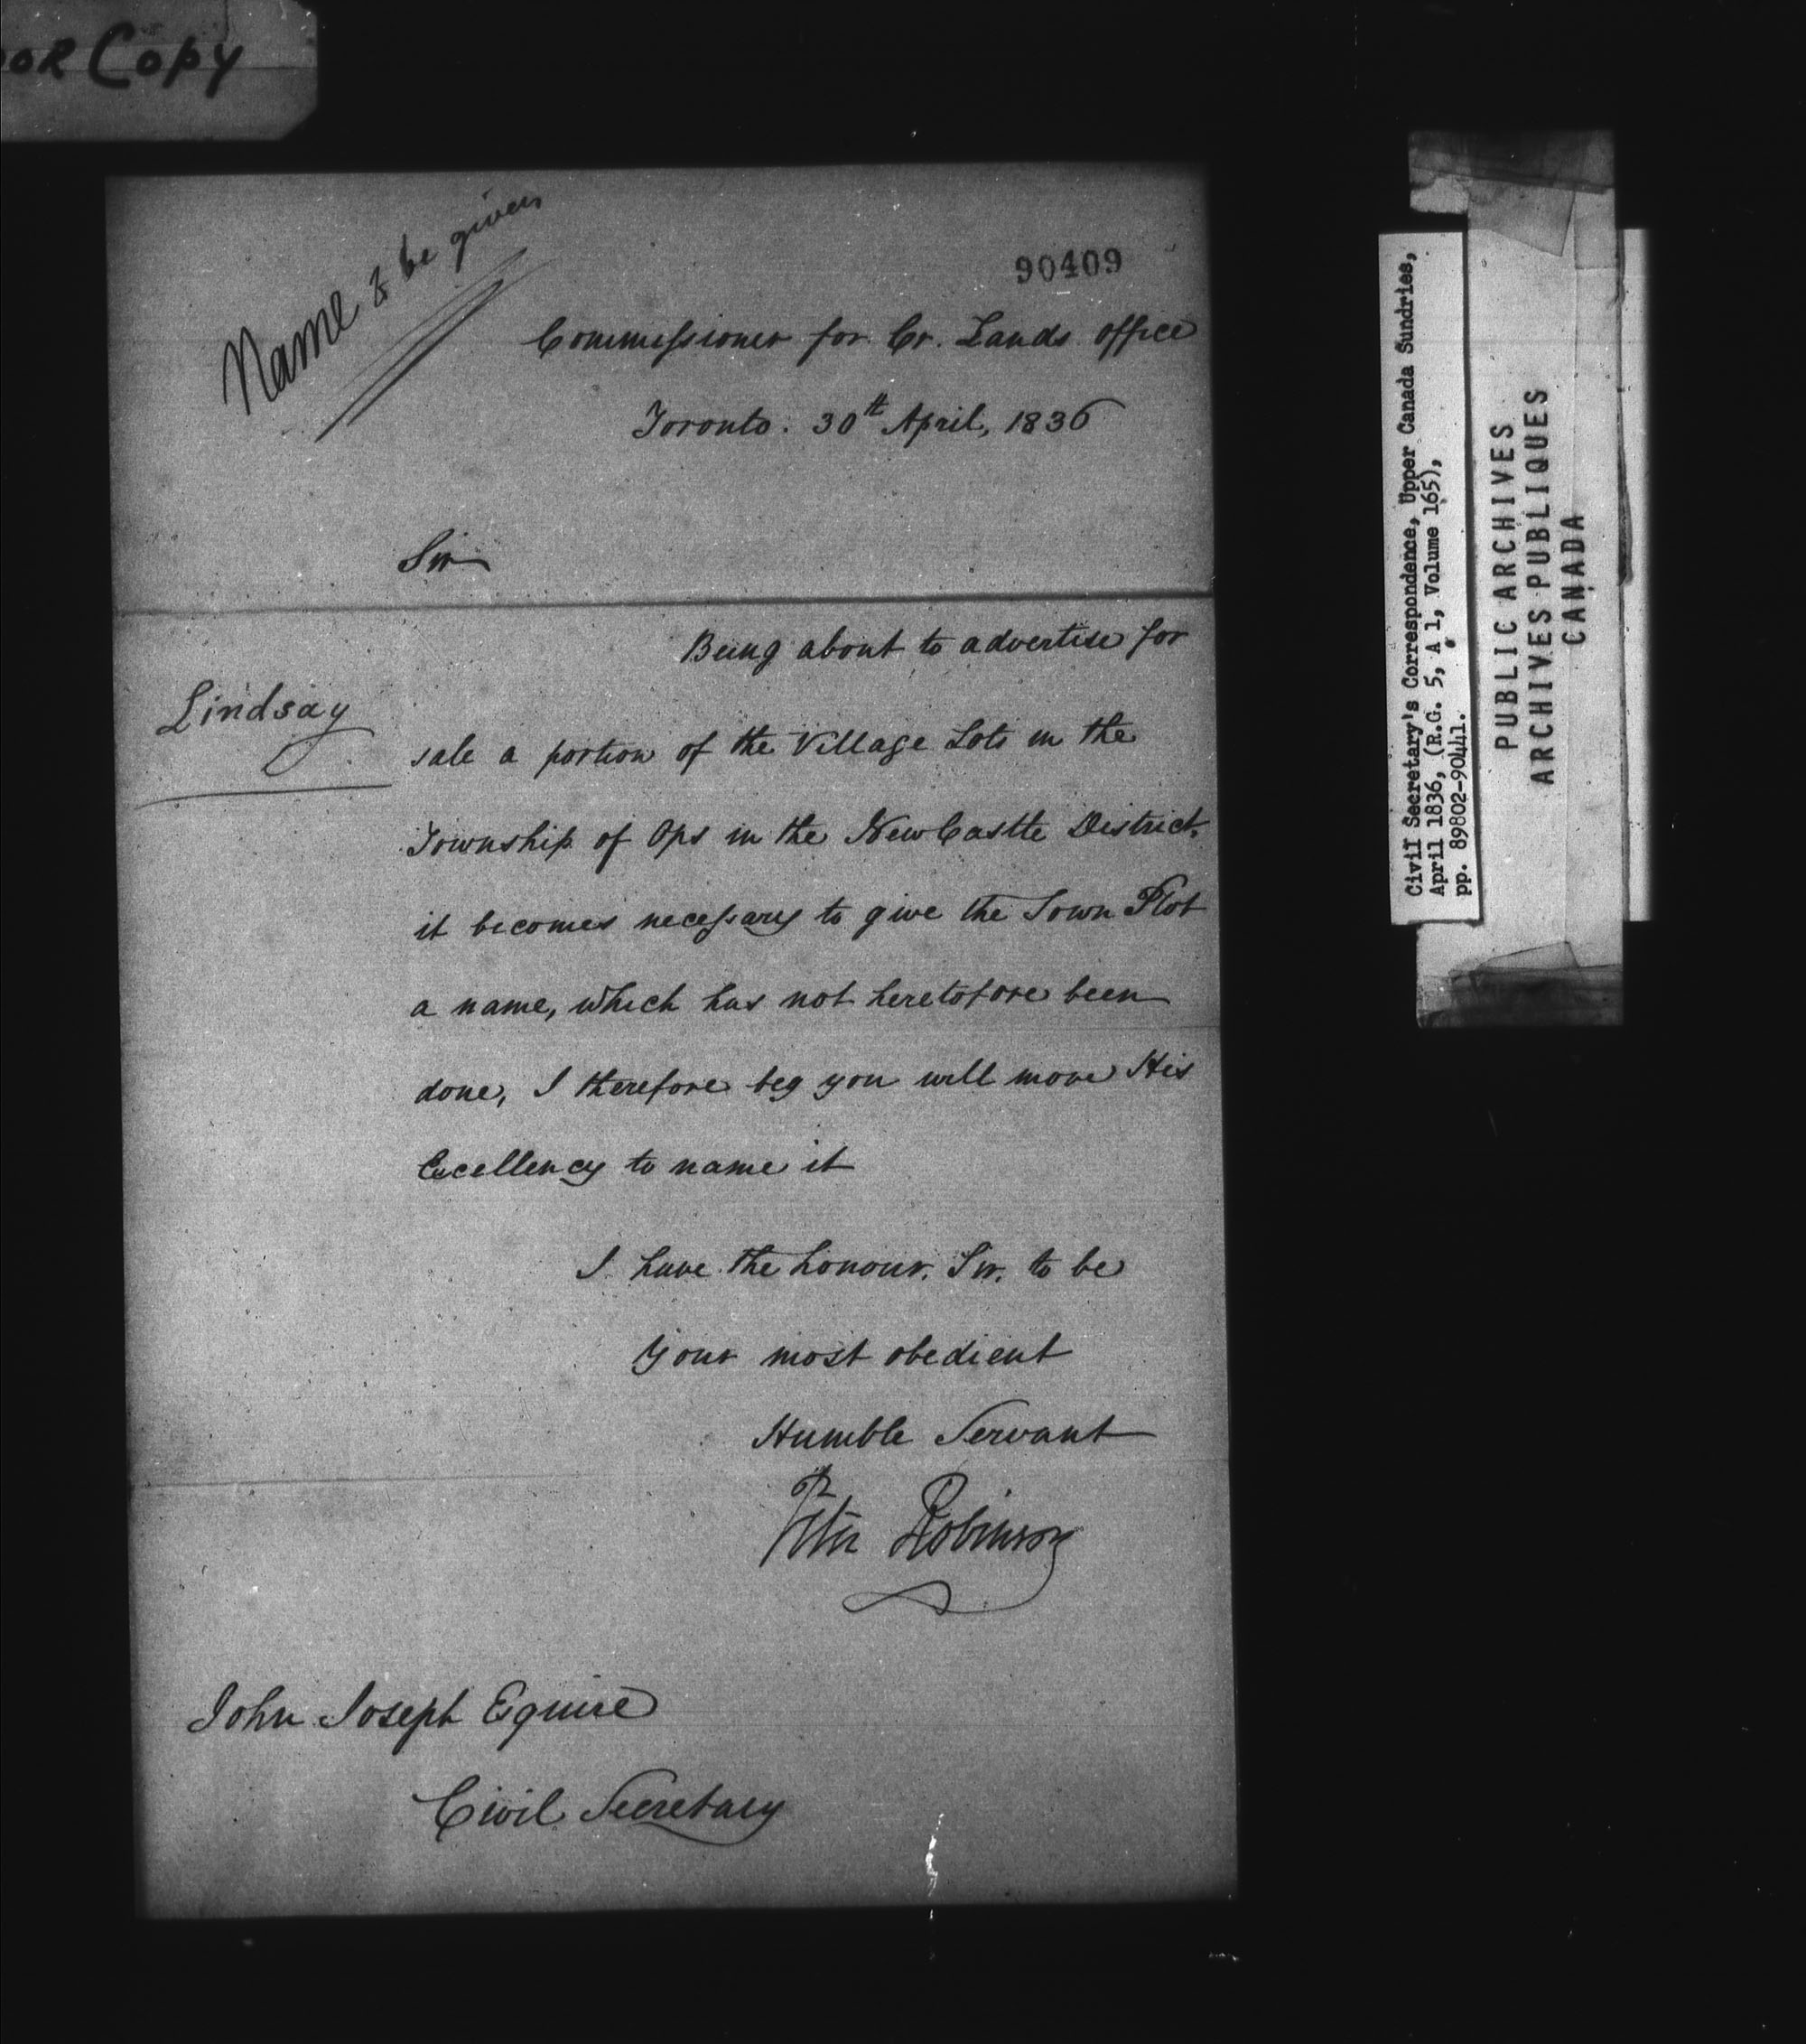 OR Copy
Name to be given
90409
Commissioner for Cr. Lands Office
Toronto. 30th April, 1836
Sir
Being about to advertise for
Lindsay
sale a portion of the Village Lots in the
Township of Ops in the NewCastle District,
it becomes necessary to give the Town Plot
a name, which has not heretofore been
done, I therefore beg you will move His
Excellency to name it
I have the honour. Sir. to be
Your most obedient
Humble Servant
Peter Robinson
John Joseph Equire
Civil Secretary
Civil Secretary's Correspondence, Upper Canada Sundries,
April 1836, (R.G. 5, A 1, Volume 165),
pp. 89802-90441.
PUBLIC ARCHIVES
ARCHIVES PUBLIQUES
CANADA